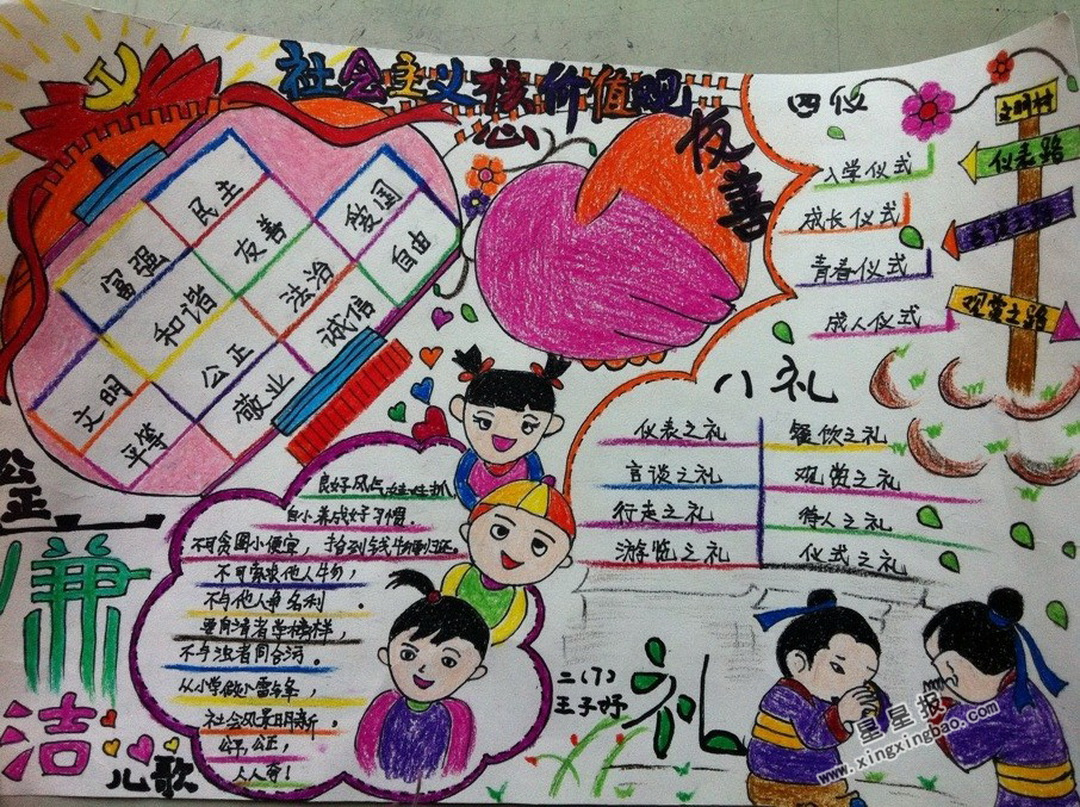 社会主义核心价值观
友善
民主
富强
友善
爱国
和谐
法治
自由
文明
公正
诚信
平等
敬业
四仪
入学仪式
成长仪式
青春仪式
成人仪式
文明村
仪表路
观赏之路
八礼
仪表之礼
餐饮之礼
言谈之礼
观赏之礼
行走之礼
待人之礼
游览之礼
仪式之礼
公正
廉
洁
儿歌
良好风气
自小养成好习惯.
不可贪图小便宜,
不可索求他人物,
不与他人争名利.
要向清者学榜样,
不与浊者同合污.
从小学做小雷锋,
社会风景明新,
公平,公正,
人人夸!
二(7)
王子妤
礼
星星报
www.xingxingbao.com